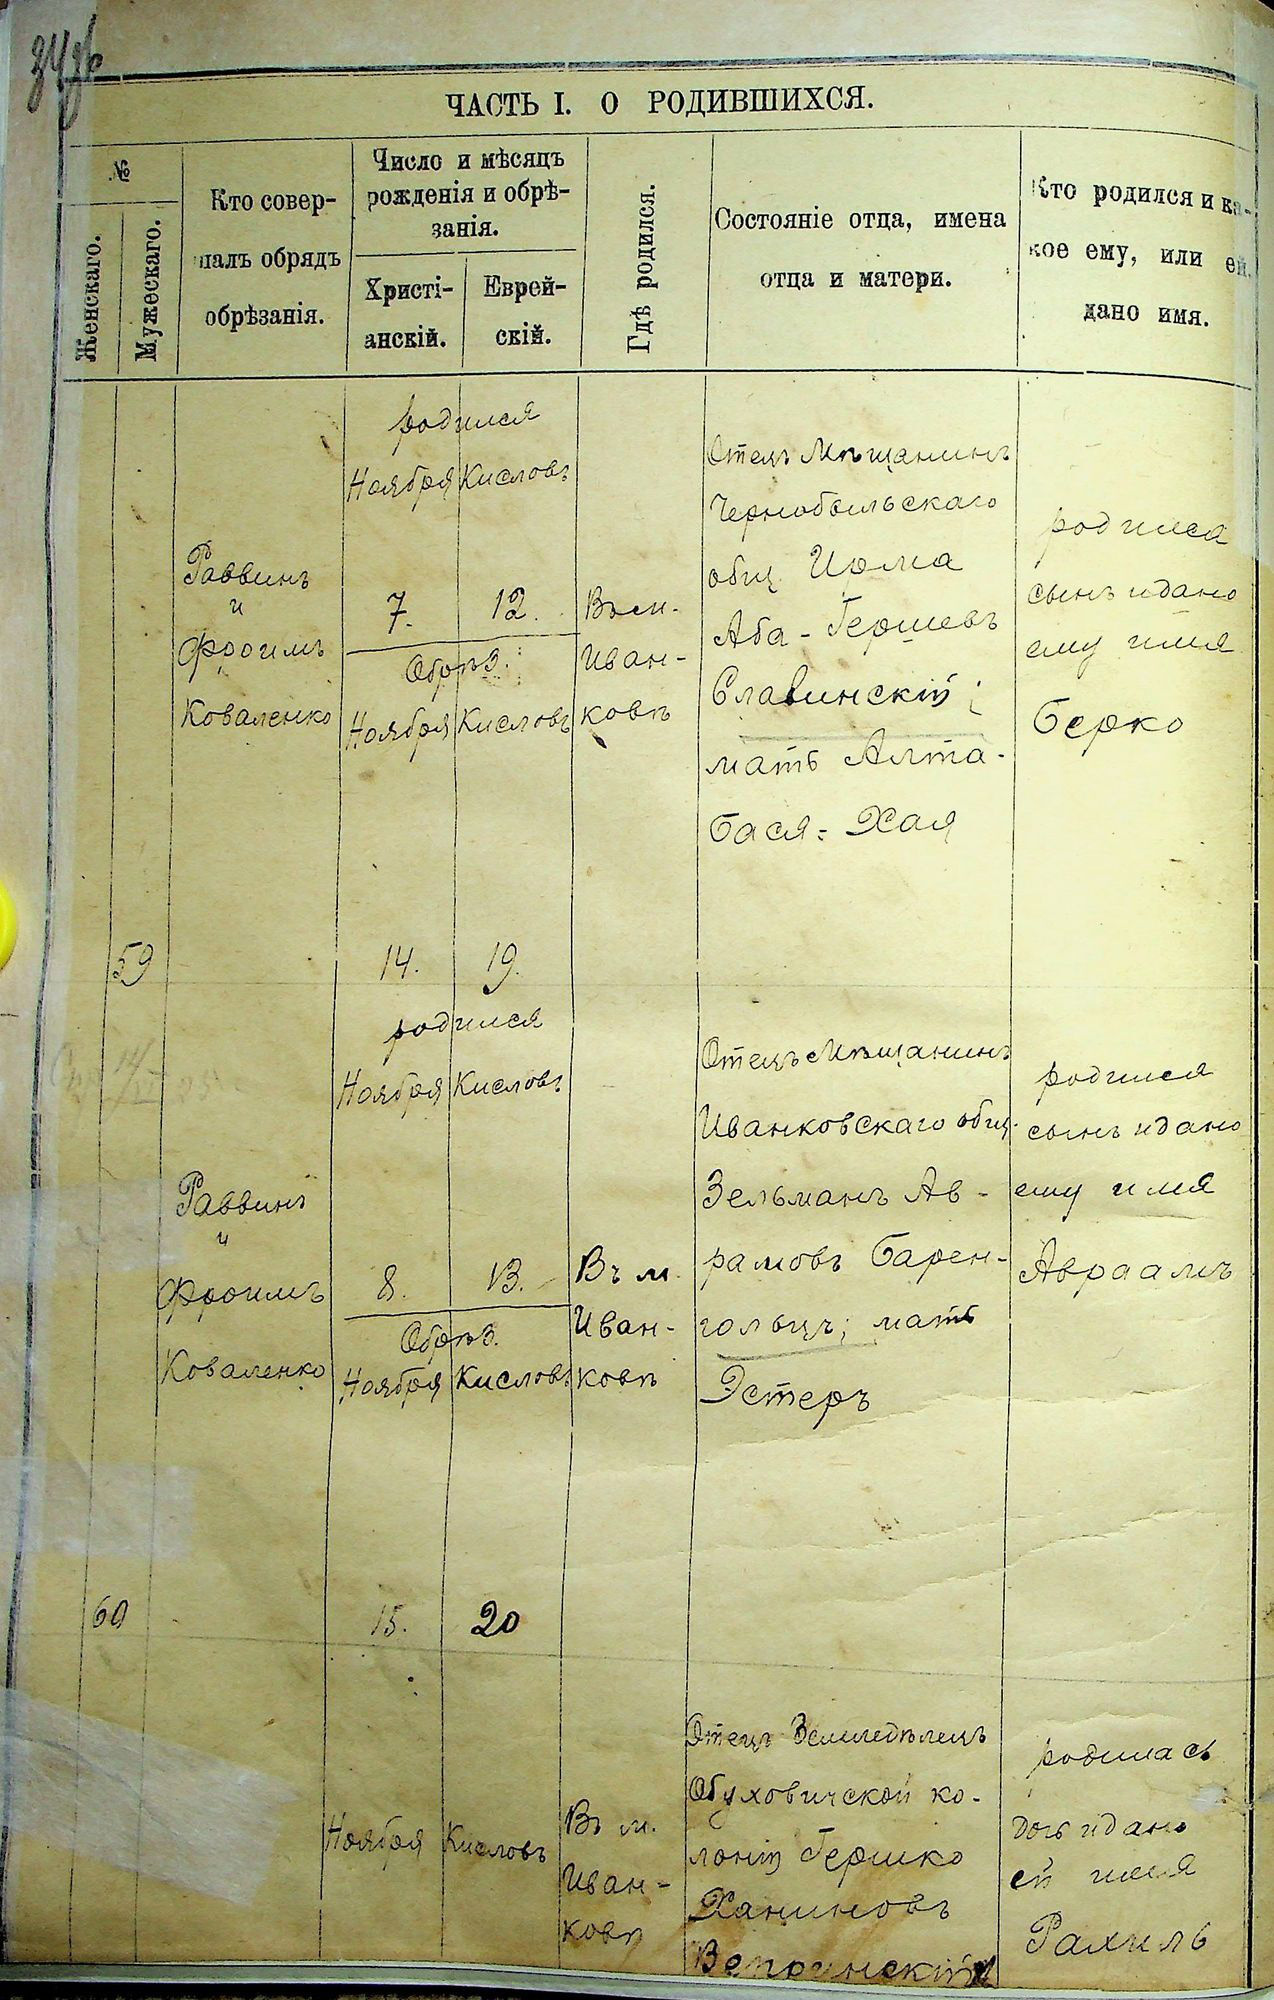 ЧАСТЬ I. О РОДИВШИХСЯ.
№
Женскаго.
Мужескаго.
Кто совер-
шалъ обрядъ
обрѣзанія.
Число и мѣсяцъ
рожденія и обрѣ-
занія.
Христі-
анскій.
Еврей-
скій.
Гдѣ родился.
Состояніе отца, имена
отца и матери.
Кто родился и ка-
кое ему, или ей,
дано имя.
59
Раввинъ
и
Фроимъ
Коваленко
родился
Ноября Кисловъ
7. 12.
Обрѣз.
Ноября Кисловъ
14. 19.
Въ м.
Иван-
ковѣ
Отецъ Мѣщанинъ
Чернобыльскаго
общ Иома
Аба - Гершевъ
Славинскій;
мать Алта-
Бася-Хая
родился
сынъ и дано
ему имя
Берко
60
Раввинъ
и
Фроимъ
Коваленко
родился
Ноября Кисловъ
8. 13.
Обрѣз.
Ноября Кисловъ
15. 20
Въ м.
Иван-
ковѣ
Отецъ Мѣщанинъ
Иванковскаго общ.
Зельманъ Ав-
рамовъ Барен-
гольцъ; мать
Эстеръ
родился
сынъ и дано
ему имя
Авраамъ
Ноября Кисловъ
Въ м.
Иван-
ковѣ
Отецъ Земледѣлецъ
Обуховичской ко-
лоніи Гершко
Ханиновъ
Вепринскій
родилась
дочь и дано
ей имя
Рахиль